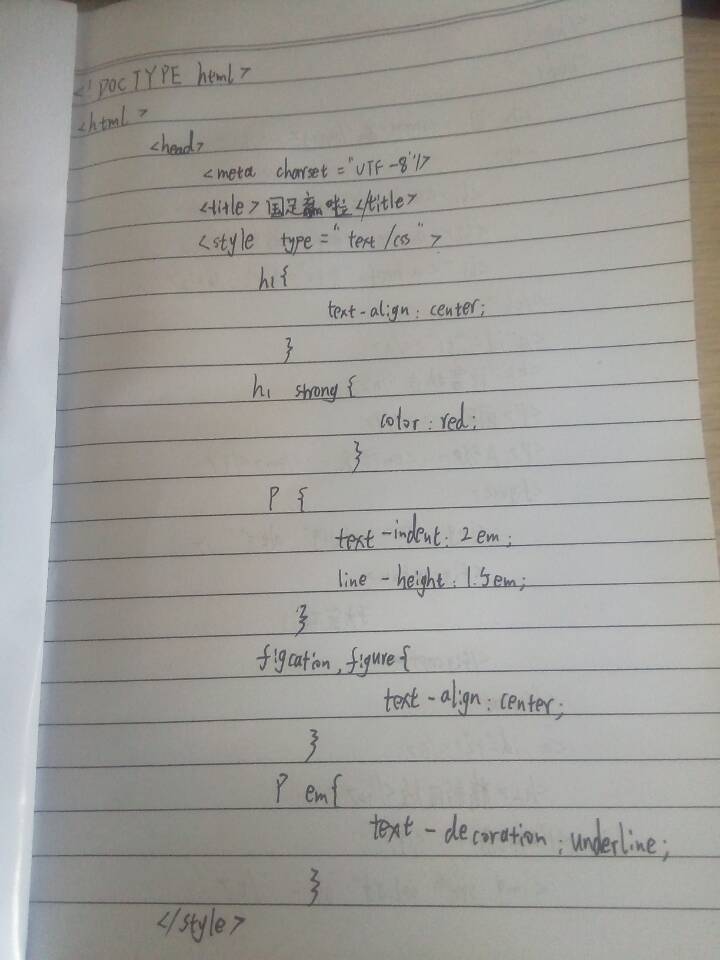 <!DOCTYPE html>
<html>
<head>
<meta charset="UTF-8"/>
<title>国足赢啦</title>
<style type="text/css">
h1{
text-align:center;
}
h1 strong{
color:red;
}
P {
text-indent:2em;
line-height:1.5em;
}
figcation,figure{
text-align:center;
}
P em{
text-decoration:underline;
}
</style>